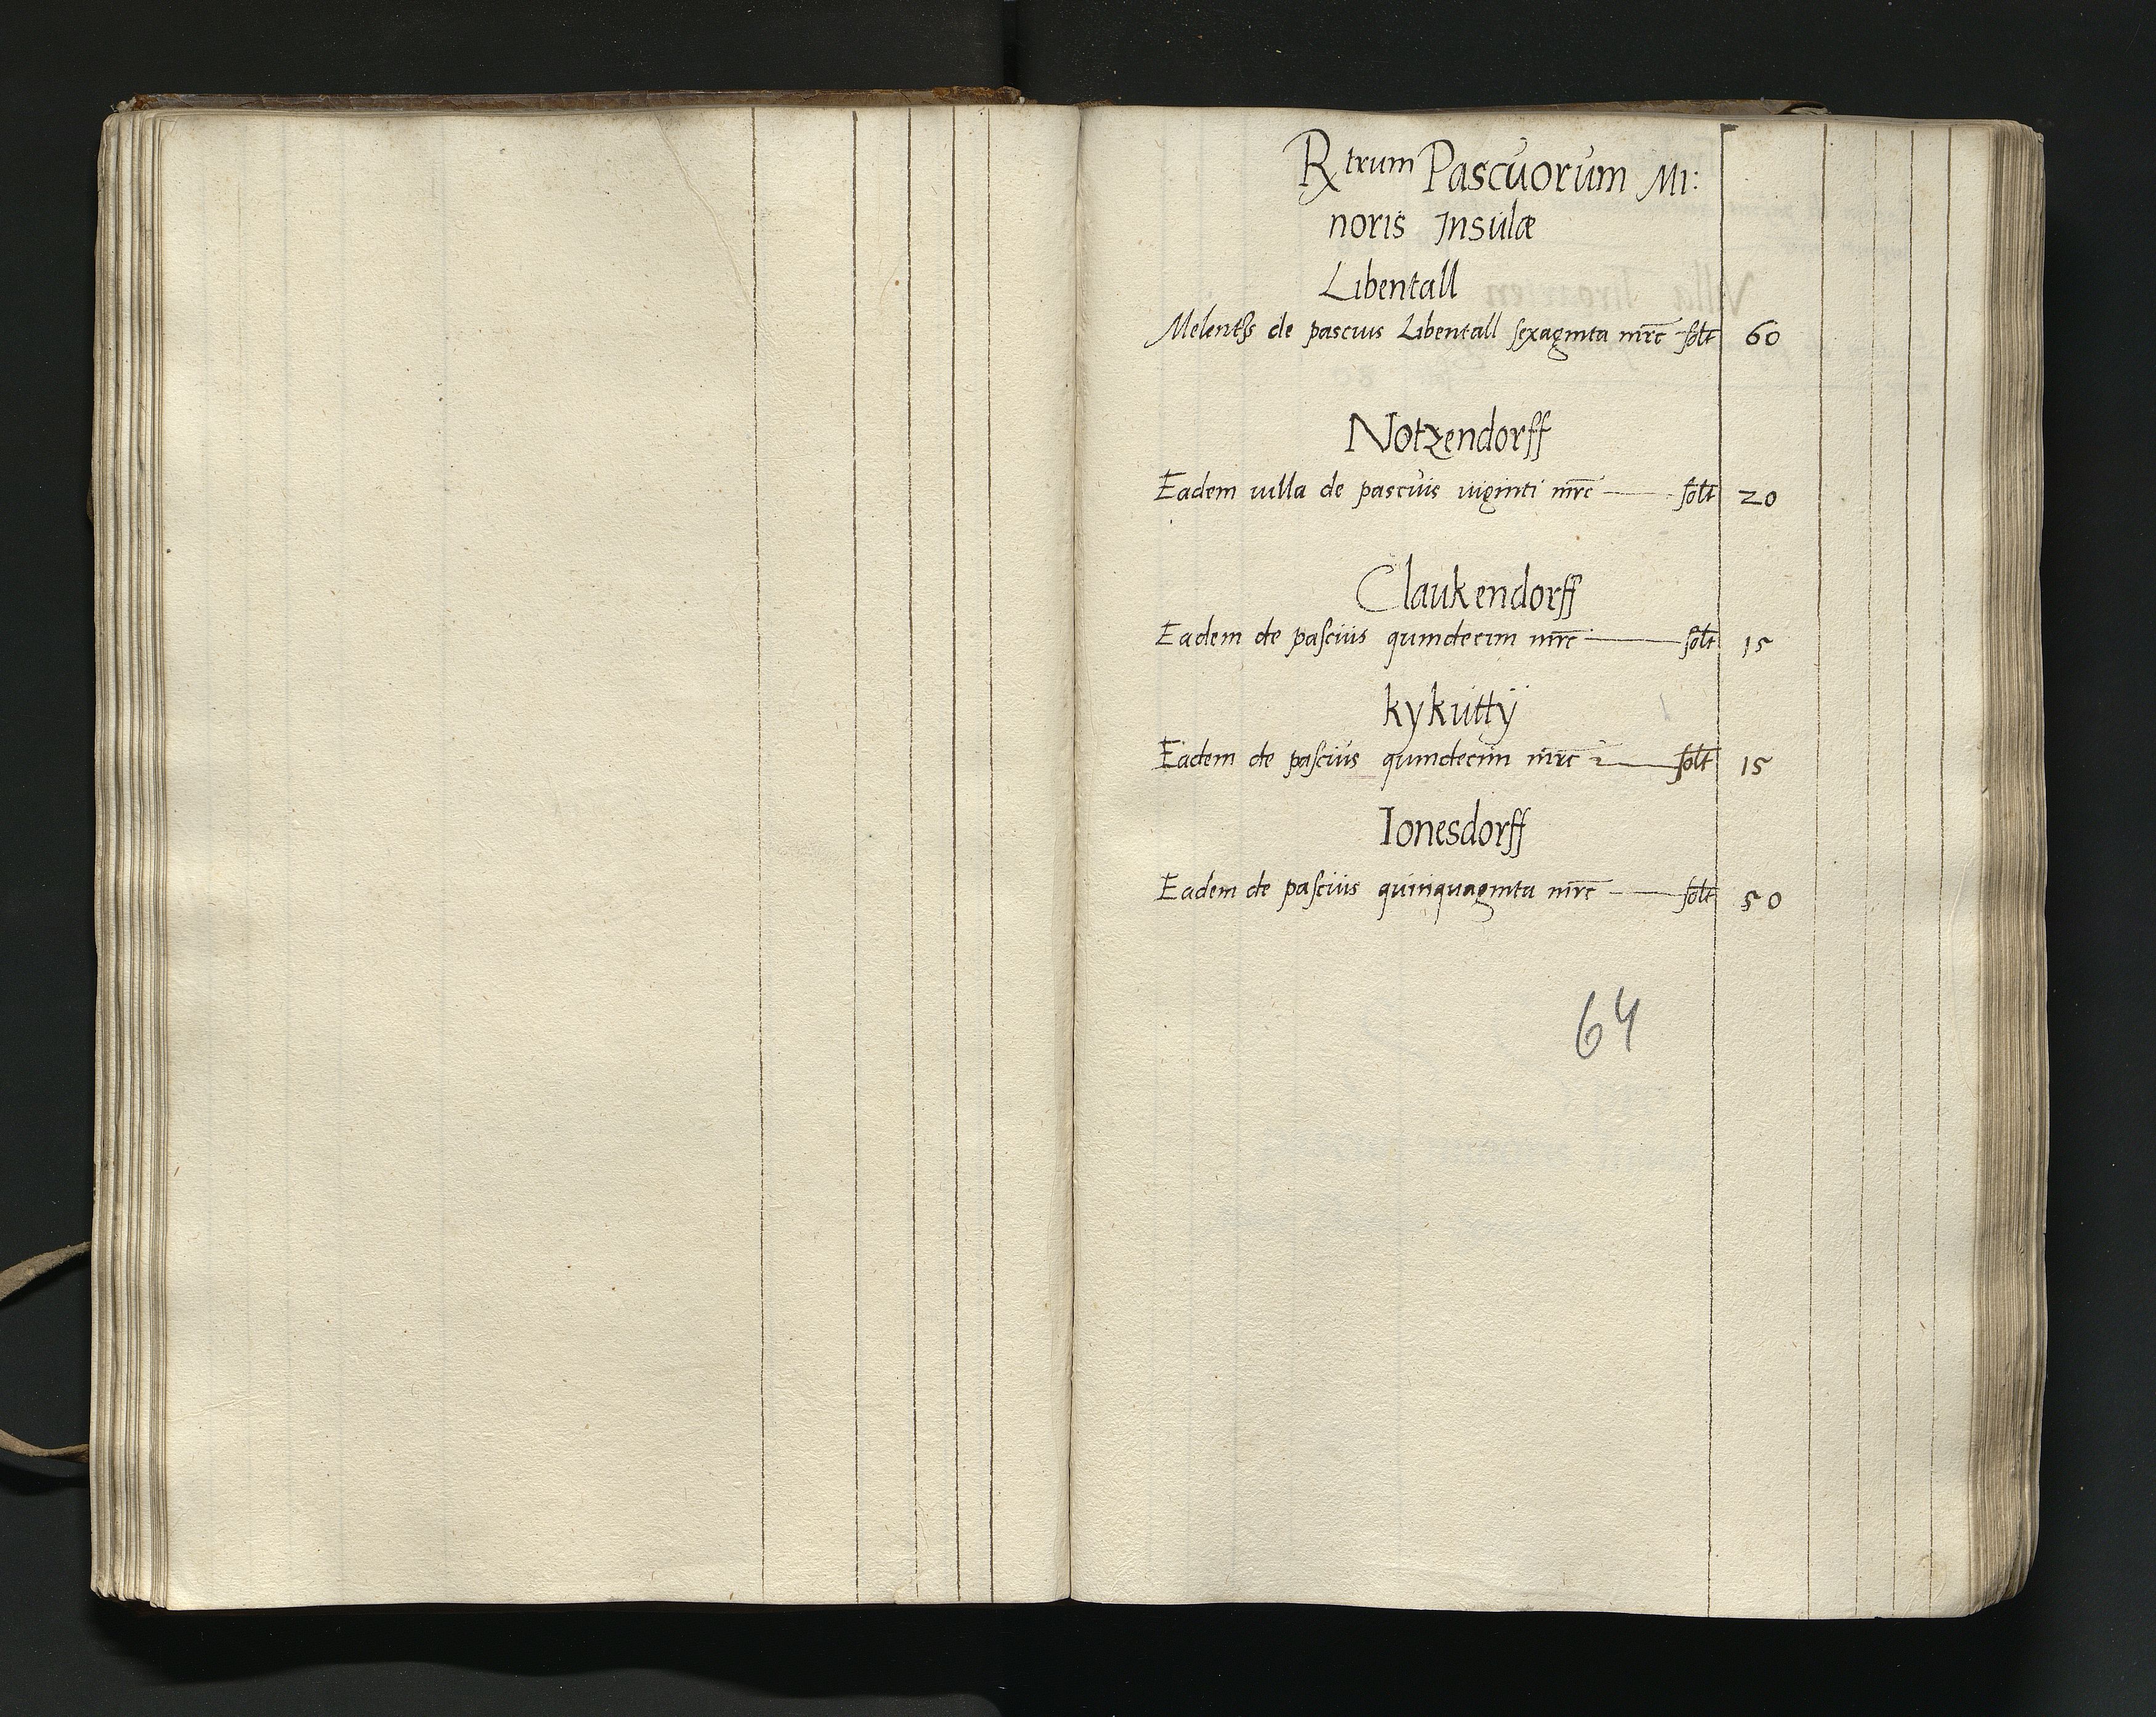 Rtrum Pascuorum Mi:
noris Insulæ
Libentall
de pascuis Libentall sexaginta mrc solt 60
Notzendorff
Eadem villa de pascuis viginti mrc solt 20
Claukendorff
Eadem de pascuis quindecim mrc solt 15
kykutty
Eadem de pascuis quindecim mrc solt 15
Ionesdorff
Eadem de pascuis quinquaginta mrc solt 50
64